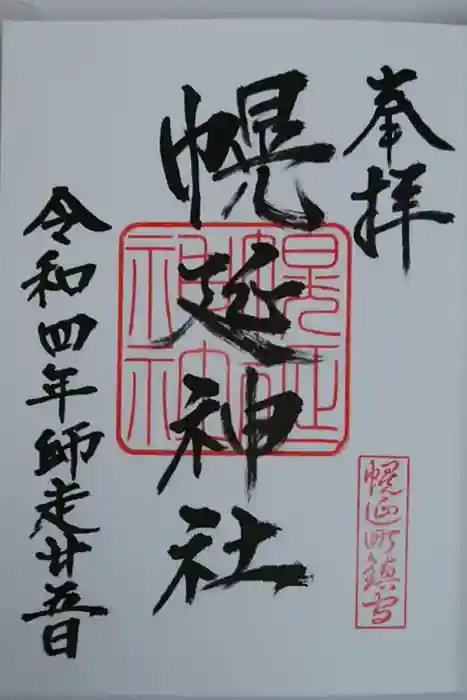 奉拝
幌延神社
幌延神社
幌延町鎮守
令和四年師走廿五日